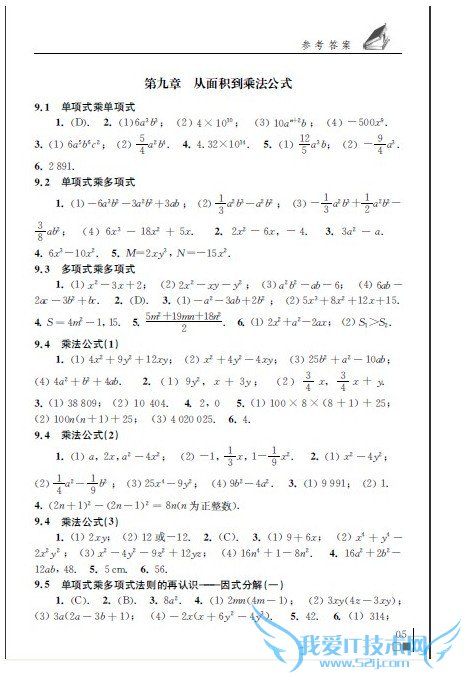 参考答案
第九章 从面积到乘法公式
9.1 单项式乘单项式
1. (D). 2. (1)6a³b³; (2)4×10¹⁰; (3)10aⁿ⁺²b; (4)-500x⁹.
3. (1)6a⁵b⁶c²; (2) 5/4 a²b⁴. 4. 4.32×10²⁴. 5. (1) 12/5 a³b; (2) -9/4 a³.
6. 2 891.
9.2 单项式乘多项式
1. (1)-6a²b²-3a²b³+3ab; (2) 1/3 a²b³-a²b²; (3)-1/3 a²b³+1/2 a²b²-
3/8 ab²; (4) 6x³-18x²+5x. 2. 2x²-6x,-4. 3. 3a²-a.
4. 6x³-10x². 5. M=2xy³,N=-15x².
9.3 多项式乘多项式
1. (1)x²-3x+2; (2)2x²-xy-y²; (3)a²b²-ab-6; (4)6ab-
2ac-3b²+bc. 2. (D). 3. (1)-a²-3ab+2b²; (2)5x³+8x²+12x+15.
4. S=4m²-1,15. 5. (5m²+19mn+18n²)/2. 6. (1)2x²+a²-2ax; (2)S₁>S₂.
9.4 乘法公式(1)
1. (1)4x²+9y²+12xy; (2)x²+4y²-4xy; (3)25b²+a²-10ab;
(4)4a²+b²+4ab. 2. (1) 9y²,x+3y; (2) 3/4 x,3/4 x+y.
3. (1)38 809; (2)10 404. 4. 2,0 5. (1)100×8×(8+1)+25;
(2)100n(n+1)+25; (3)4 020 025. 6. 4.
9.4 乘法公式(2)
1. (1)a,2x,a²-4x²; (2) -1,1/3 x,1-1/9 x². 2. (1)x²-4y²;
(2) 1/4 a²-1/9 b²; (3)25x⁴-9y²; (4)9b²-4a². 3. (1)9 991; (2)1.
4. (2n+1)²-(2n-1)²=8n(n为正整数).
9.4 乘法公式(3)
1. (1)2xy; (2)12或-12. 2. (C). 3. (1)9+6x; (2)x⁴+y⁴-
2x²y²; (3)x²-4y²-9z²+12yz; (4)16n⁴+1-8n². 4. 16a²+2b²-
12ab,48. 5. 5 cm. 6. 56.
9.5 单项式乘多项式法则的再认识——因式分解(一)
1. (C). 2. (B). 3. 8a². 4. (1)2mn(4m-1); (2)3xy(4z-3xy);
(3)3a(2a-3b+1); (4)-2x(x+6y²-4y³). 5. 42. 6. (1)314;
05
我爱IT技术网
www.52ij.com